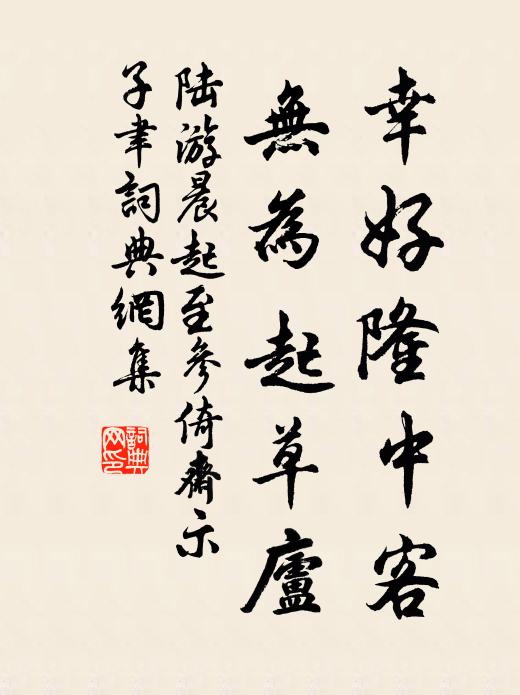 幸好隆中客
無為起草廬
陆游晨起至參倚齋示
子聿詞典網集
詞典
网印